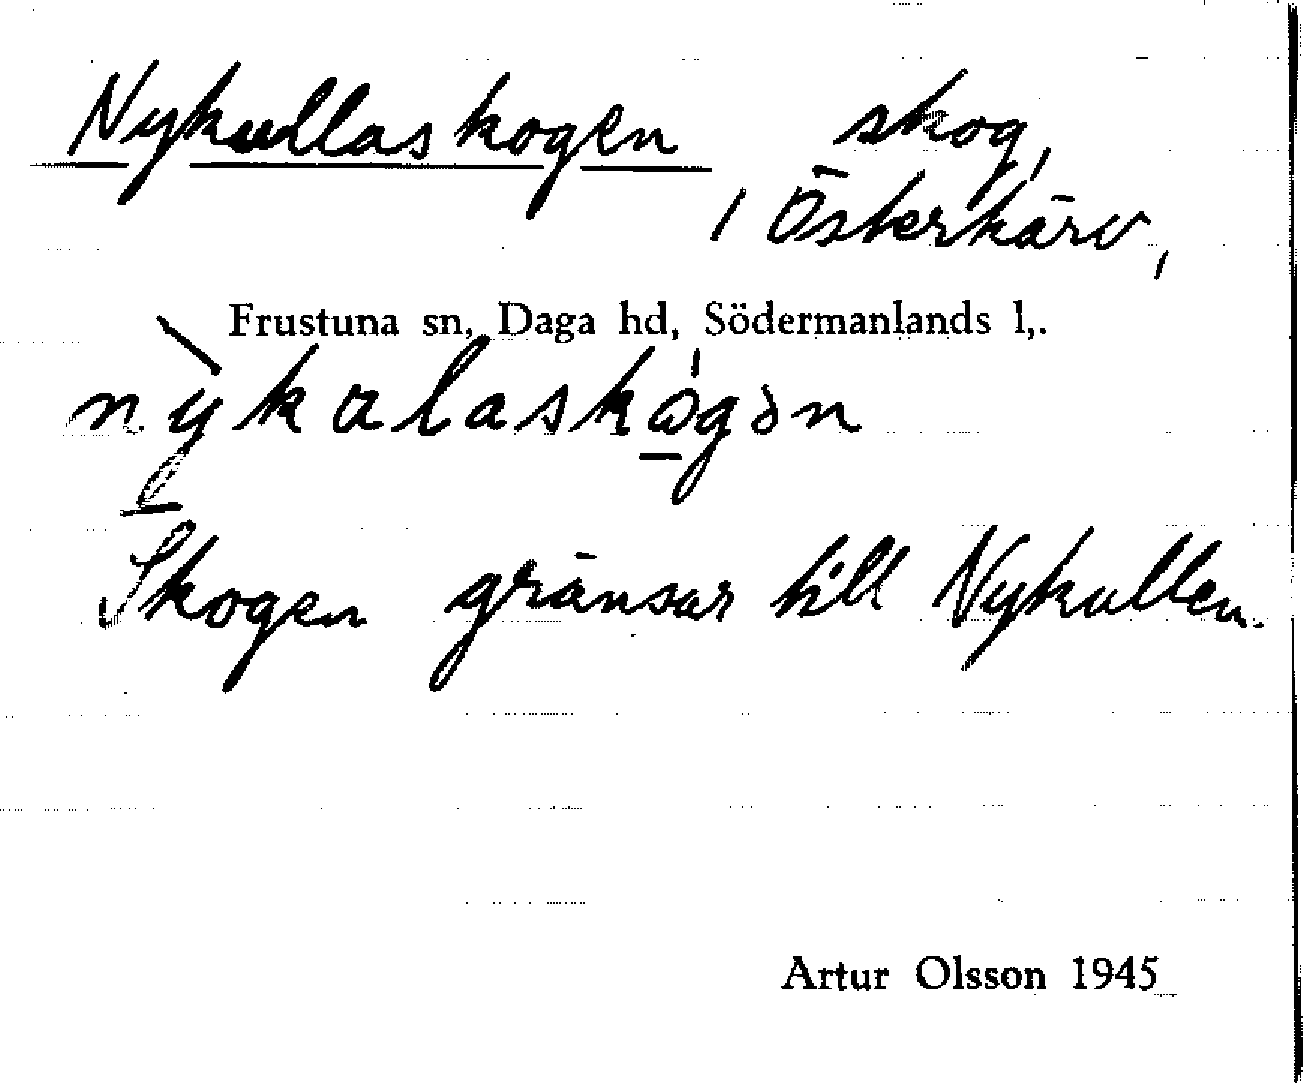 Nykullaskogen skog,
i Österkärv,
Frustuna sn, Daga hd, Södermanlands l,.
nỳkαlaskɷ́gən
Skogen gränsar till Nykullen.
Artur Olsson 1945